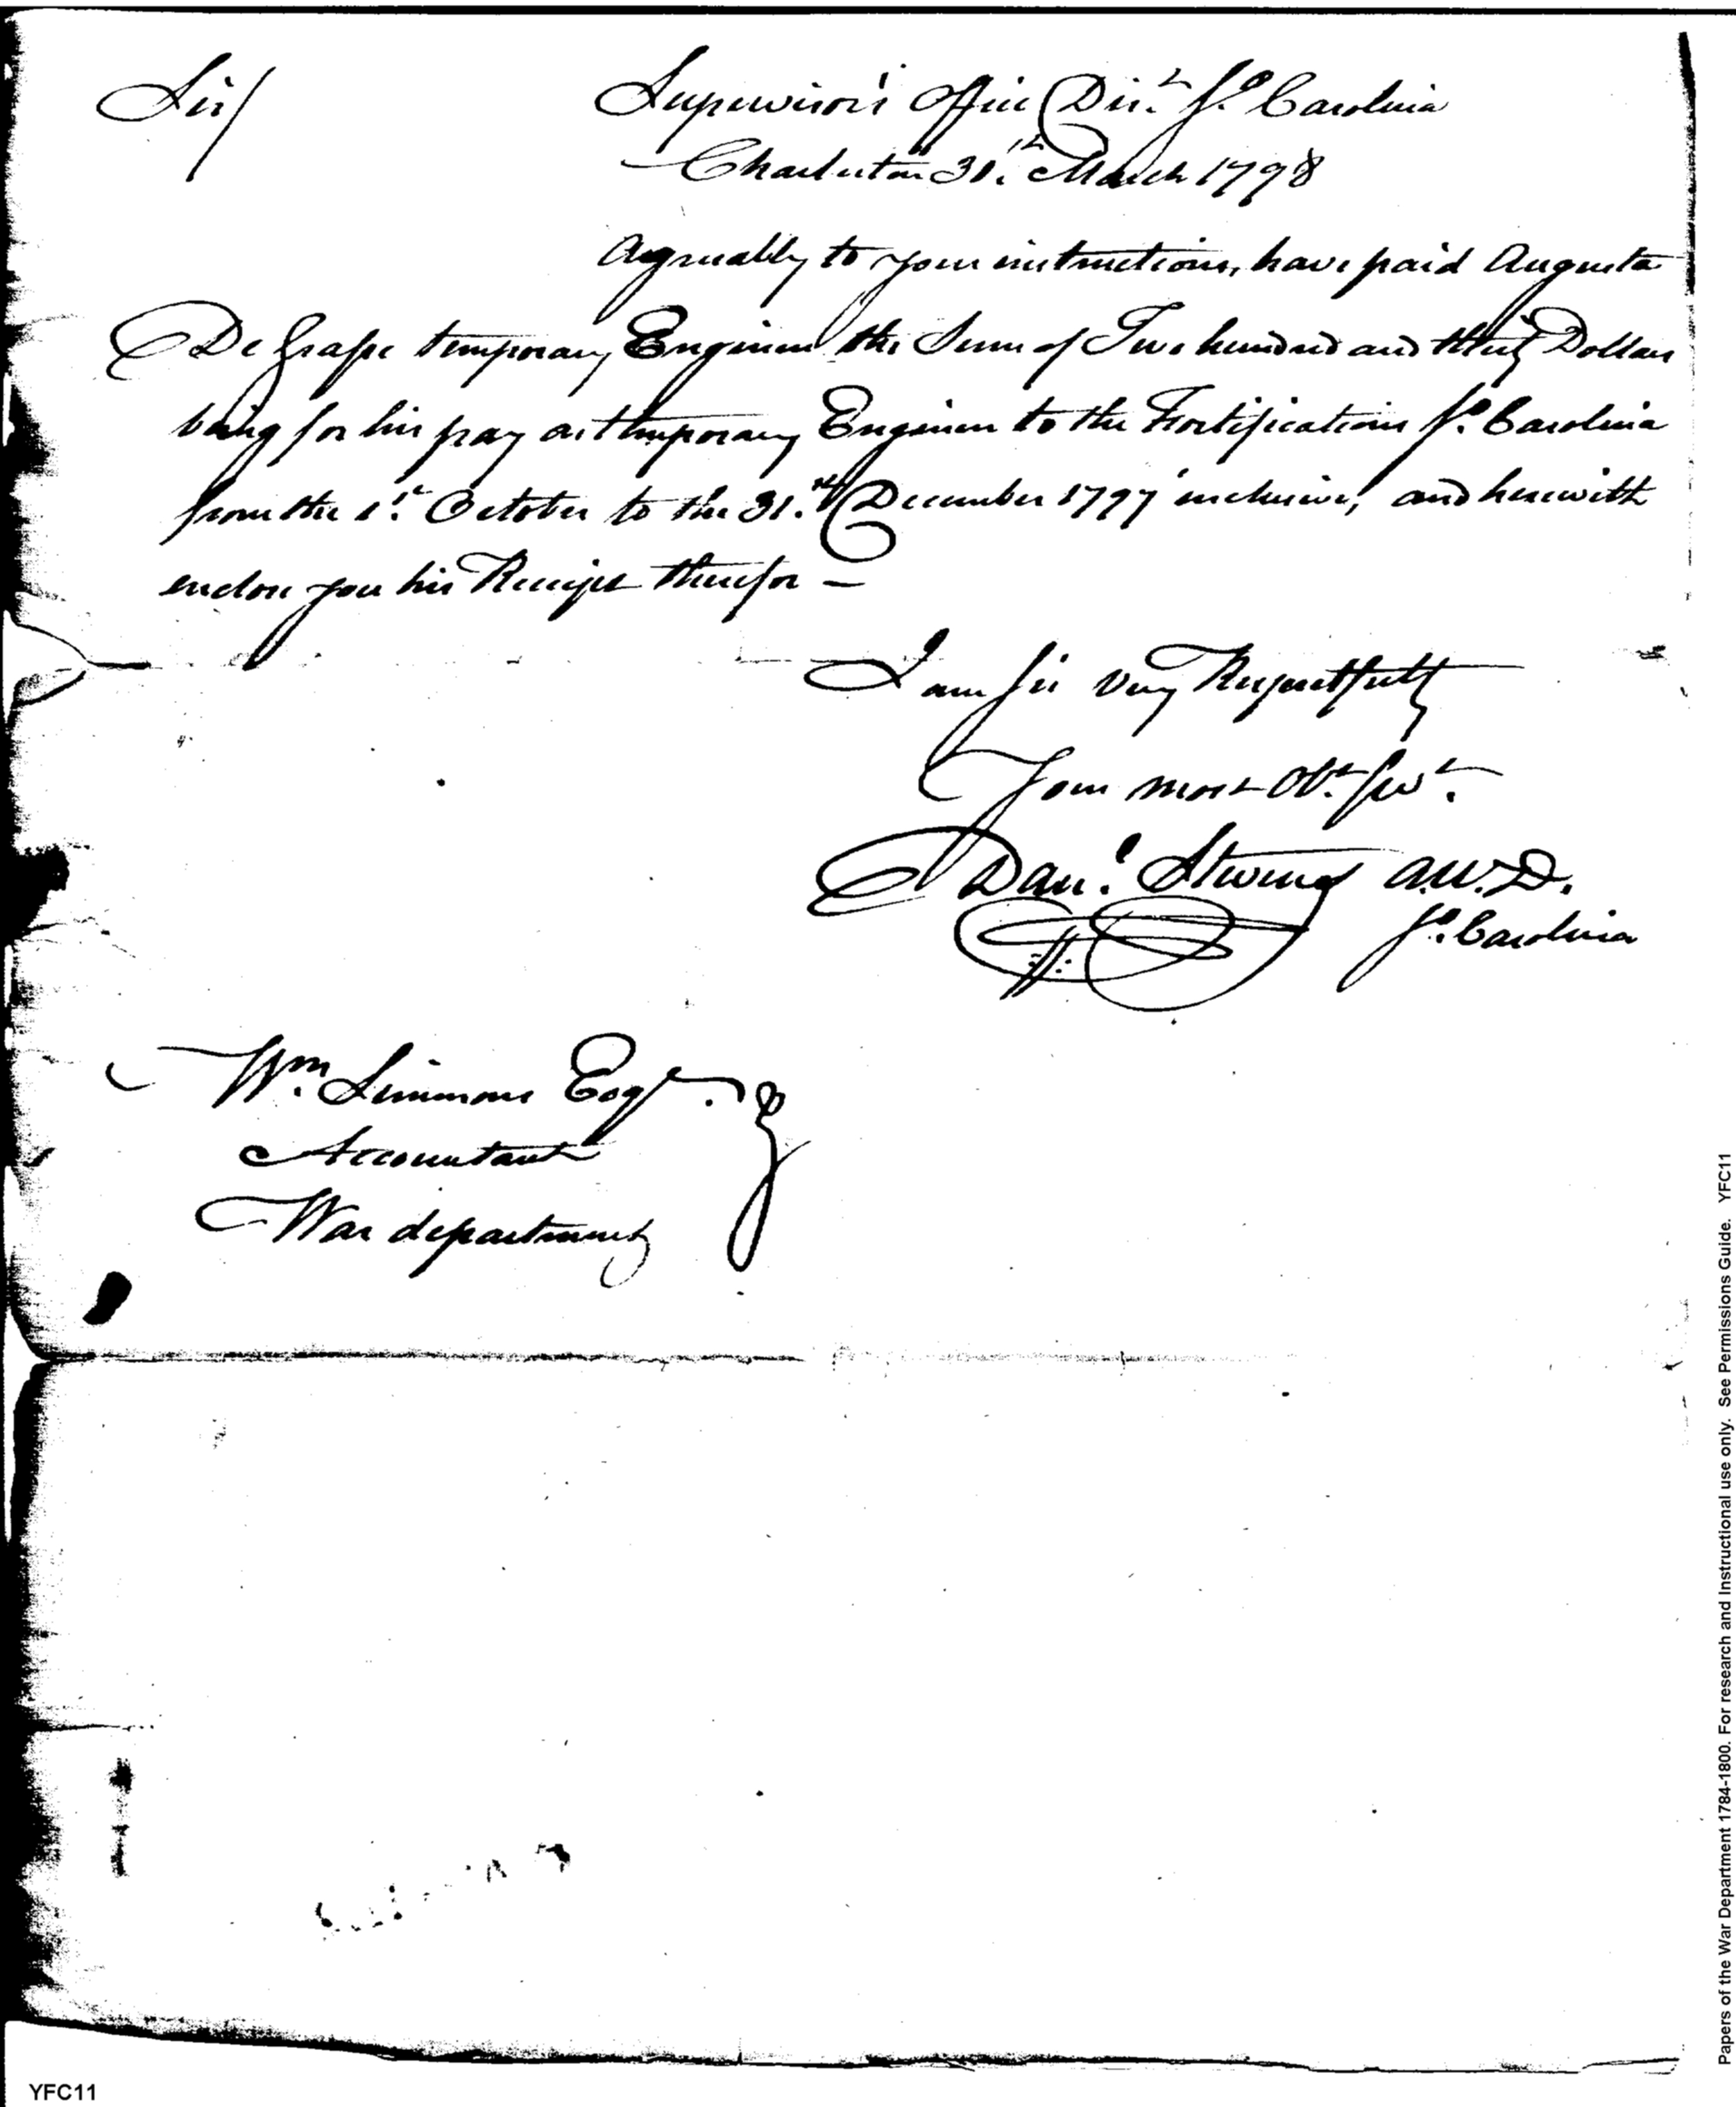 Sir/
Supervisor's Office Dist. So. Carolina
Charleston 31.st March 1798
Agreeably to your instructions, have paid Augusta
De Grasse temporary Engineer the Sum of Two hundred and thirty Dollars
being for his pay as temporary Engineer to the Fortifications So. Carolina
from the 1.st October to the 31.st December 1797 inclusive, and herewith
enclose you his Receipt therefor —
I am Sir very Respectfully
Your most Obt. Servt.
Danl. Stevens A.W.D.
So. Carolina
Wm. Simmons Esqr.
Accountant
War department
Papers of the War Department 1784-1800. For research and Instructional use only. See Permissions Guide. YFC11
YFC11